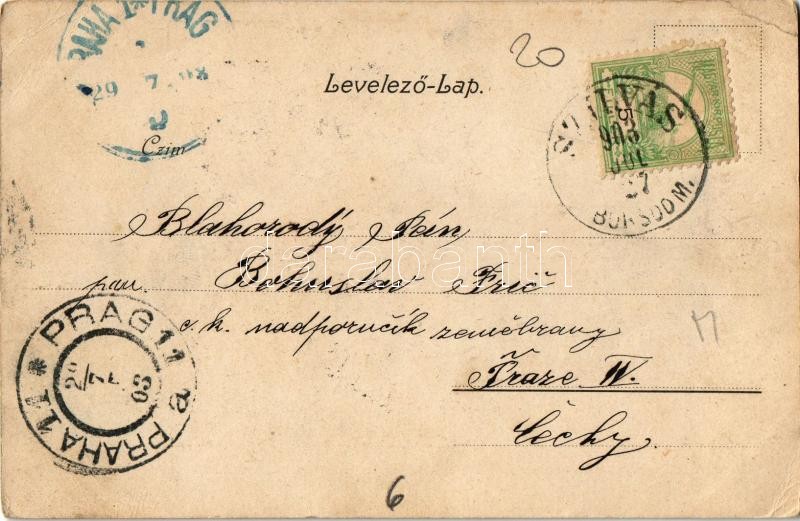 PRAHA 1 * PRAG
29 7 08
20
Levelező-Lap.
SZILVÁS
903
JUL
27
BORSOD M.
5
Czim
Blahorodý Pán,
pan. Bohuslav Frič
c. k. nadporučík zeměbrany
Praze IV.
Čechy.
M
PRAG 11 a
* PRAHA 11
29/7 03
6
darabanth